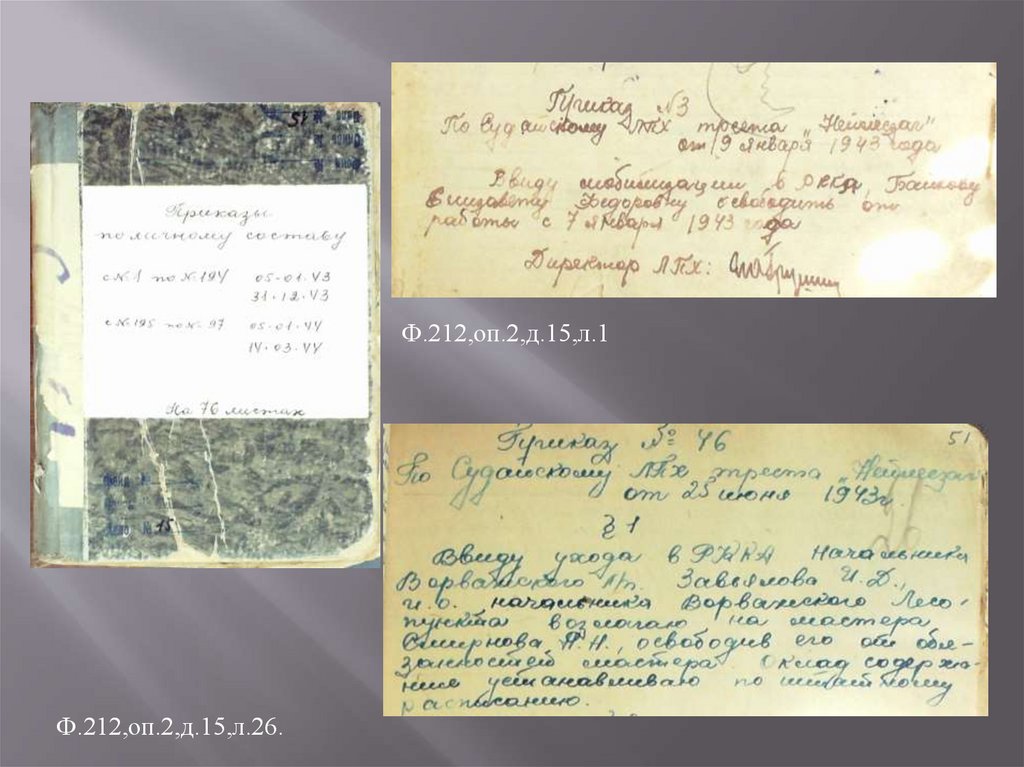 51
Приказы
по личному составу
с №1 по №194 05-01-43
31-12-43
с №195 по №97 05-01-44
14-03-44
На 76 листах
15
Приказ №3
По Судайскому ЛПХ треста "Нейлесзаг"
от 9 января 1943 года
Ввиду мобилизации в РККА,
Елизавету Федоровну освободить от
работы с 7 января 1943 года
Директор ЛПХ:
Ф.212,оп.2,д.15,л.1
Приказ № 46 51
По Судайскому ЛПХ треста "Нейлесзаг"
от 25 июня 1943г.
§ 1
Ввиду ухода в РККА начальника
Ворважского л/п. Завьялова И.Д.,
и.о. начальника Ворважского Лесо-
пункта возлагаю на мастера
Смирнова А.Н., освободив его от обя-
занностей мастера. Оклад содержа-
ние устанавливаю по штатному
расписанию.
Ф.212,оп.2,д.15,л.26.